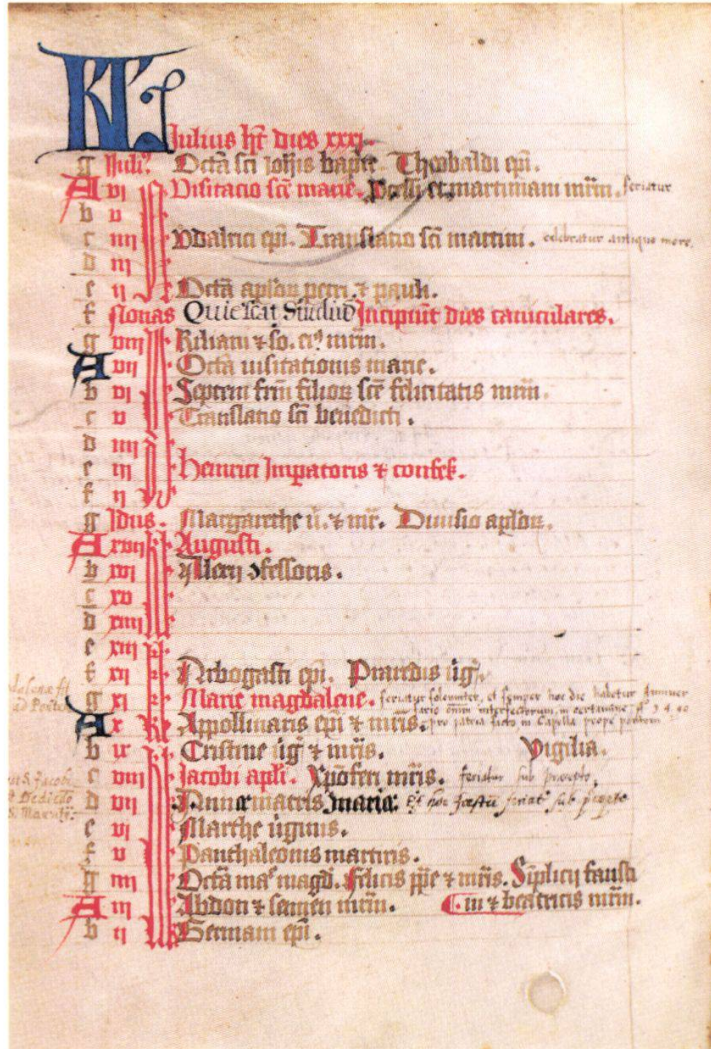 KL
Julius ht dies xxxj.
g Julij Octa sci Johis bapte. Theobaldi epi.
A vi Visitacio sce marie. Pcessi et martiniani mrm. feriatur
b v
c iiij Vdalrici epi. Translatio sci martini. celebratur antiquo more.
d iij
e ij Octa aplor petri & pauli.
f Nonas Quiescit Studiu Incipiut dies caniculares.
g viij Kiliani & so. ei9 mrm.
A vij Octa visitationis marie.
b vi Septem frm filior sce felicitatis mrm.
c v Translatio sci benedicti.
d iiij
e iij Heinrici Impatoris & confess.
f ij
g Idus. Margarethe v. & mr. Diuisio aplor.
A xvij Augusti.
b xvi Allexij 9fessoris.
c xv
d xiiij
e xiij
f xij Arbogasti epi. Praxedis vig.
g xi Marie magdalene. feriatur solenniter, et semper hoc die habetur
A x Appollinaris epi & mris. pro patria in Capella prope pontem
b ix Cristine vig & mris. Vigilia.
c viij Jacobi apli. Xpofori mris. feriatur sub precepto
d vij Anne matris marie. Et hoc festum feriat sub precepto
e vi Marthe vginis.
f v Panthaleonis martiris.
g iiij Octa mae magd. Felicis ppe & mris. Siplicij fausti
A iij Abdon & sennen mrm. ni & beatricis mrm.
b ij Germani epi.